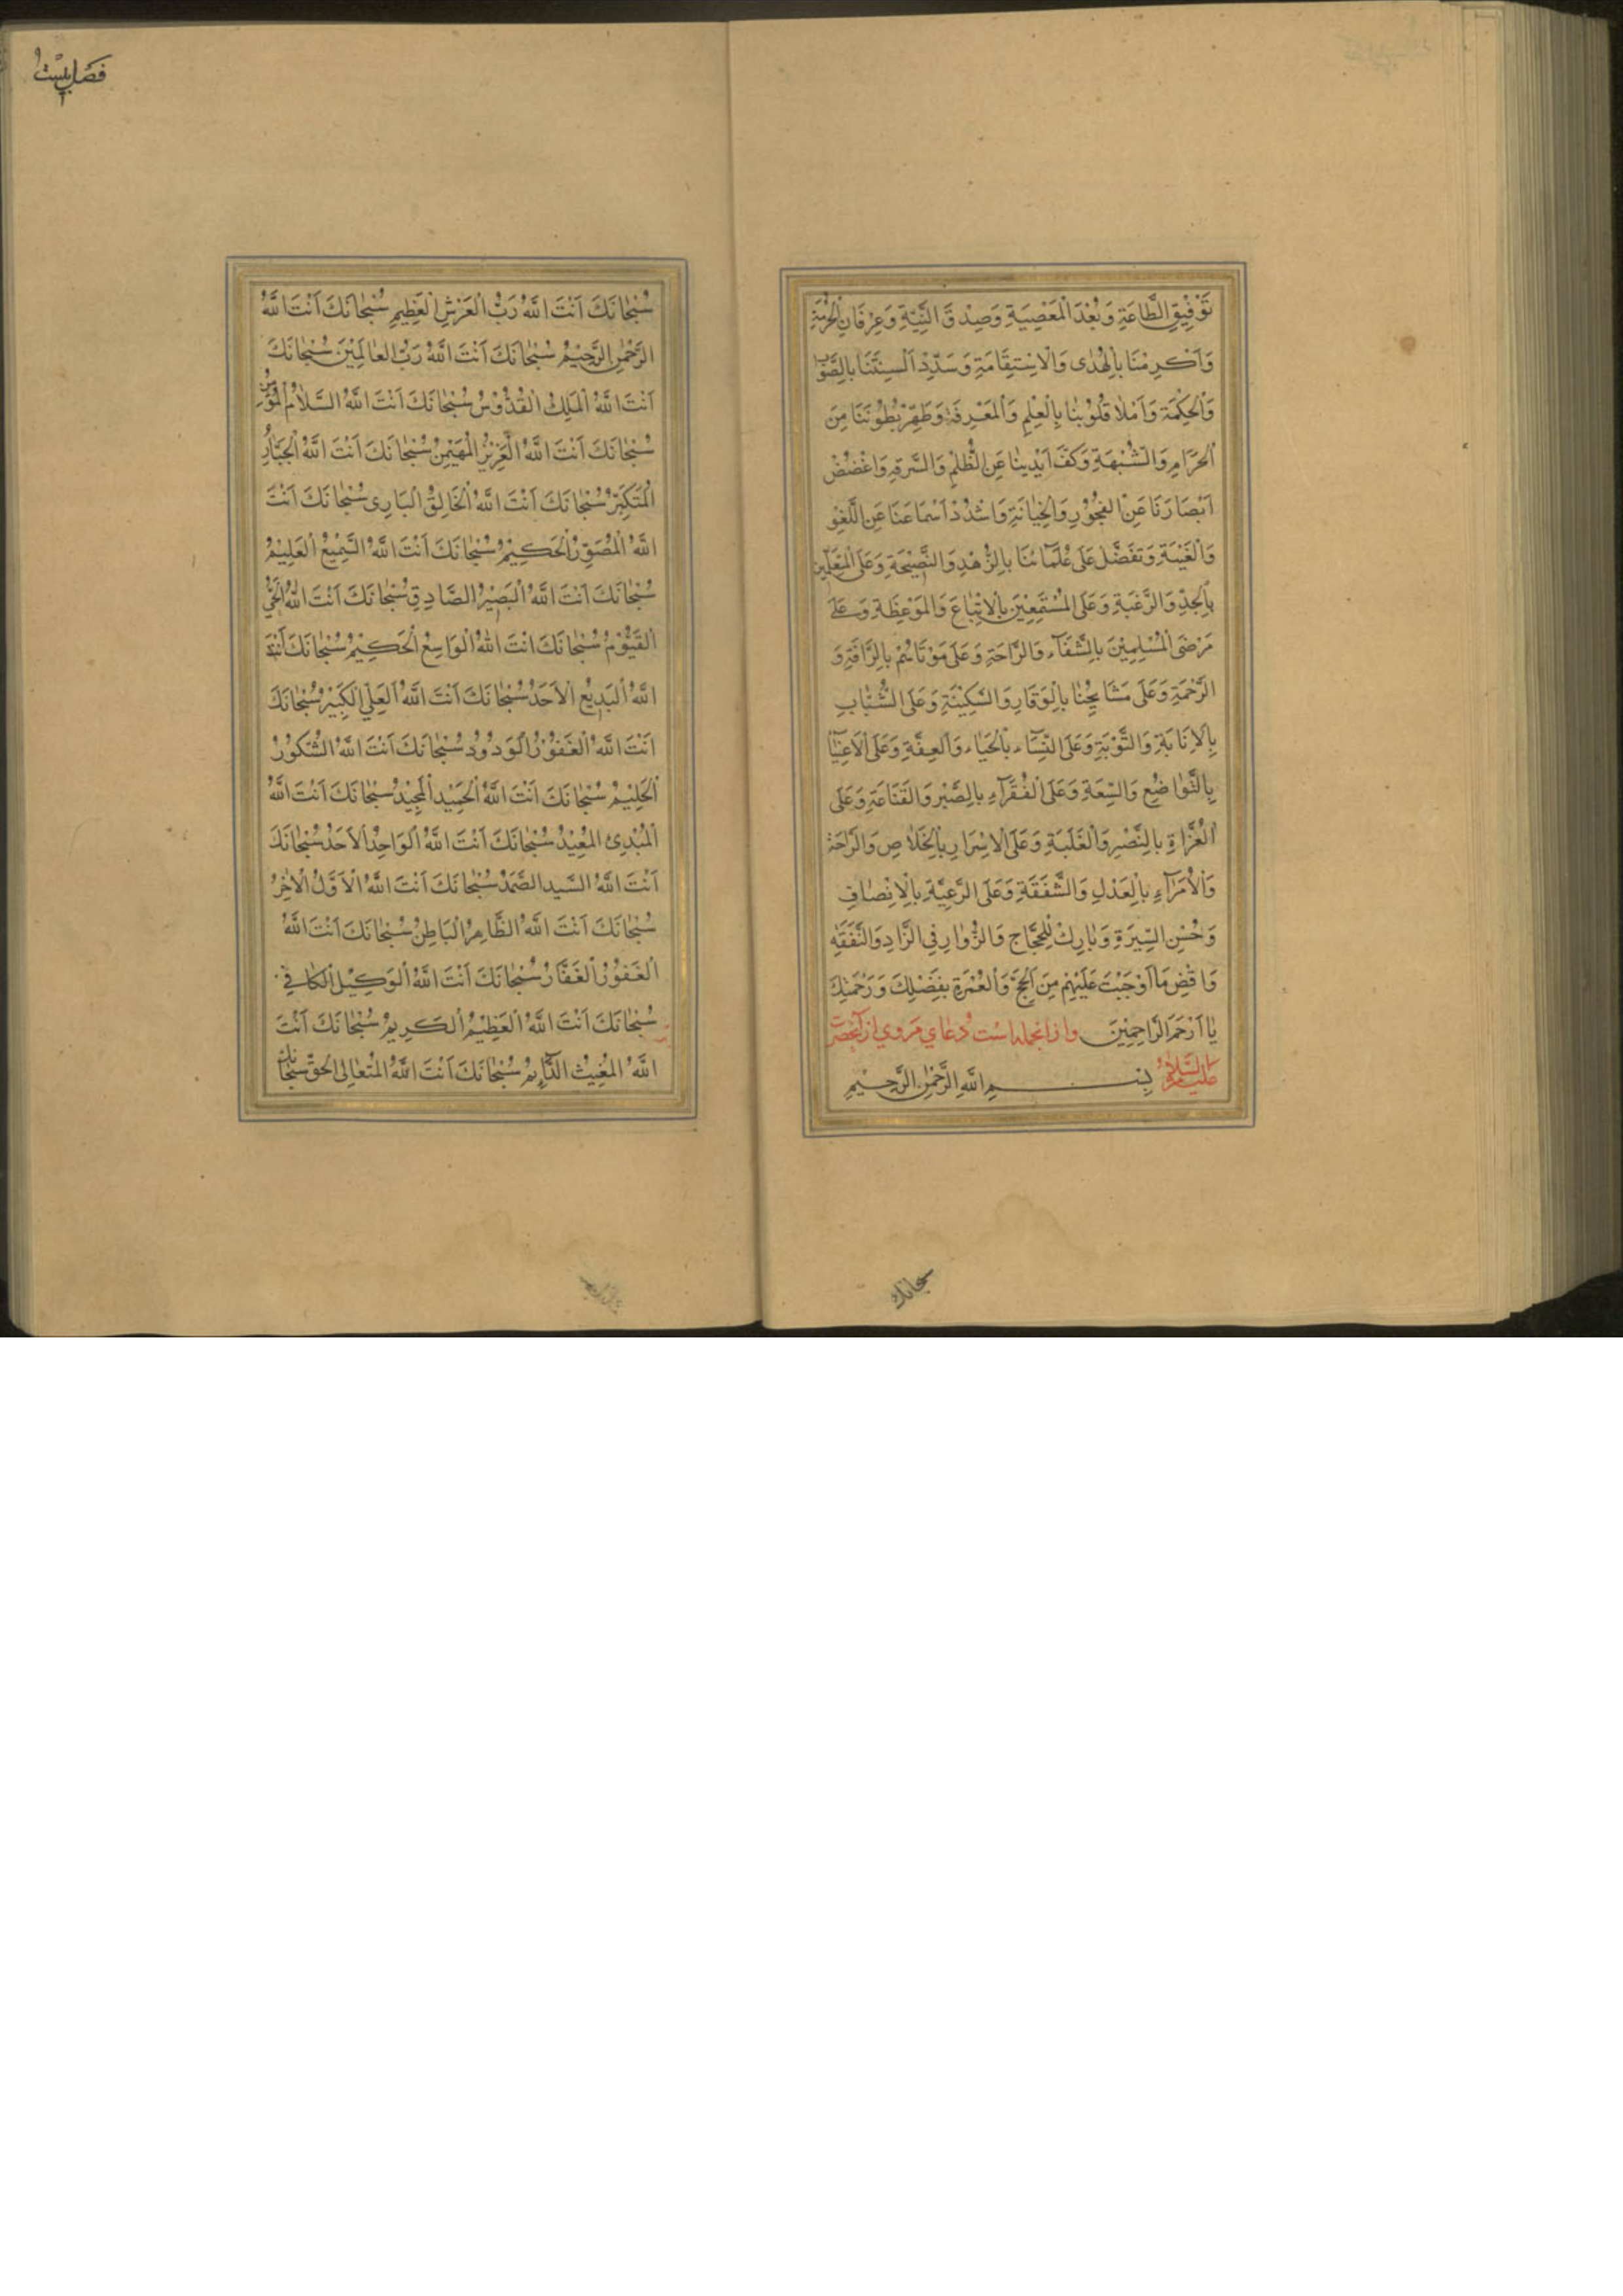 تَوْفِيقَ الطَّاعَةِ وَبُعْدَ الْمَعْصِيَةِ وَصِدْقَ النِّيَّةِ وَعِرْفَانَ الْحُرْمَةِ
وَاَكْرِمْنَا بِالْهُدٰى وَالْاِسْتِقَامَةِ وَسَدِّدْ اَلْسِنَتَنَا بِالصَّوَابِ
وَالْحِكْمَةِ وَاَمْلَأْ قُلُوْبَنَا بِالْعِلْمِ وَالْمَعْرِفَةِ وَطَهِّرْ بُطُوْنَنَا مِنَ
الْحَرَامِ وَالشُّبْهَةِ وَكُفَّ اَيْدِيَنَا عَنِ الظُّلْمِ وَالسَّرِقَةِ وَاغْضُضْ
اَبْصَارَنَا عَنِ الْفُجُوْرِ وَالْخِيَانَةِ وَاشْدُدْ اَسْمَاعَنَا عَنِ اللَّغْوِ
وَالْغَيْبَةِ وَتَفَضَّلْ عَلٰى عُلَمَآئِنَا بِالزُّهْدِ وَالنَّصِيْحَةِ وَعَلَى الْمُتَعَلِّمِيْنَ
بِالْجِدِّ وَالرَّغْبَةِ وَعَلَى الْمُسْتَمِعِيْنَ بِالْاِتِّبَاعِ وَالْمَوْعِظَةِ وَعَلٰى
مَرْضَى الْمُسْلِمِيْنَ بِالشَّفَآءِ وَالرَّاحَةِ وَعَلٰى مَوْتَاهُمْ بِالرَّأْفَةِ وَ
الرَّحْمَةِ وَعَلٰى مَشَايِخِنَا بِالْوَقَارِ وَالسَّكِيْنَةِ وَعَلَى الشُّبَّابِ
بِالْاِنَابَةِ وَالتَّوْبَةِ وَعَلَى النِّسَآءِ بِالْحَيَاءِ وَالْعِفَّةِ وَعَلَى الْاَغْنِيَآءِ
بِالتَّوَاضُعِ وَالسَّعَةِ وَعَلَى الْفُقَرَآءِ بِالصَّبْرِ وَالْقَنَاعَةِ وَعَلَى
الْغُزَاةِ بِالنَّصْرِ وَالْغَلَبَةِ وَعَلَى الْاُسَرَارِ بِالْخَلَاصِ وَالرَّاحَةِ
وَالْاُمَرَآءِ بِالْعَدْلِ وَالشَّفَقَةِ وَعَلَى الرَّعِيَّةِ بِالْاِنْصَافِ
وَحُسْنِ السِّيْرَةِ وَبَارِكْ لِلْحُجَّاجِ وَالزُّوَّارِ فِي الزَّادِ وَالنَّفَقَةِ
وَاقْضِ مَا اَوْجَبْتَ عَلَيْهِمْ مِنَ الْحَجِّ وَالْعُمْرَةِ بِفَضْلِكَ وَرَحْمَتِكَ
يَا اَرْحَمَ الرَّاحِمِيْنَ وازانجمله است دعاي مروي از آنحضرت
عليه السلام بِسْمِ اللّٰهِ الرَّحْمٰنِ الرَّحِيْمِ
سبحانك
فصل بيست
سُبْحَانَكَ اَنْتَ اللّٰهُ رَبُّ الْعَرْشِ الْعَظِيْمِ سُبْحَانَكَ اَنْتَ اللّٰهُ
الرَّحْمٰنُ الرَّحِيْمُ سُبْحَانَكَ اَنْتَ اللّٰهُ رَبُّ الْعَالَمِيْنَ سُبْحَانَكَ
اَنْتَ اللّٰهُ الْمَلِكُ الْقُدُّوْسُ سُبْحَانَكَ اَنْتَ اللّٰهُ السَّلَامُ الْمُؤْمِنُ
سُبْحَانَكَ اَنْتَ اللّٰهُ الْعَزِيْزُ الْمُهَيْمِنُ سُبْحَانَكَ اَنْتَ اللّٰهُ الْجَبَّارُ
الْمُتَكَبِّرُ سُبْحَانَكَ اَنْتَ اللّٰهُ الْخَالِقُ الْبَارِئُ سُبْحَانَكَ اَنْتَ
اللّٰهُ الْمُصَوِّرُ الْحَكِيْمُ سُبْحَانَكَ اَنْتَ اللّٰهُ السَّمِيْعُ الْعَلِيْمُ
سُبْحَانَكَ اَنْتَ اللّٰهُ الْبَصِيْرُ الصَّادِقُ سُبْحَانَكَ اَنْتَ اللّٰهُ الْحَيُّ
الْقَيُّوْمُ سُبْحَانَكَ اَنْتَ اللّٰهُ الْوَاسِعُ الْحَكِيْمُ سُبْحَانَكَ اَنْتَ
اللّٰهُ الْبَدِيْعُ الْاَحَدُ سُبْحَانَكَ اَنْتَ اللّٰهُ الْعَلِيُّ الْكَبِيْرُ سُبْحَانَكَ
اَنْتَ اللّٰهُ الْغَفُوْرُ الْوَدُوْدُ سُبْحَانَكَ اَنْتَ اللّٰهُ الشَّكُوْرُ
الْحَلِيْمُ سُبْحَانَكَ اَنْتَ اللّٰهُ الْحَمِيْدُ الْمَجِيْدُ سُبْحَانَكَ اَنْتَ اللّٰهُ
الْمُبْدِئُ الْمُعِيْدُ سُبْحَانَكَ اَنْتَ اللّٰهُ الْوَاحِدُ الْاَحَدُ سُبْحَانَكَ
اَنْتَ اللّٰهُ السَّيِّدُ الصَّمَدُ سُبْحَانَكَ اَنْتَ اللّٰهُ الْاَوَّلُ الْاٰخِرُ
سُبْحَانَكَ اَنْتَ اللّٰهُ الظَّاهِرُ الْبَاطِنُ سُبْحَانَكَ اَنْتَ اللّٰهُ
الْغَفُوْرُ الْغَفَّارُ سُبْحَانَكَ اَنْتَ اللّٰهُ الْوَكِيْلُ الْكَافِيْ
سُبْحَانَكَ اَنْتَ اللّٰهُ الْعَظِيْمُ الْكَرِيْمُ سُبْحَانَكَ اَنْتَ
اللّٰهُ الْمُغِيْثُ الدَّآئِمُ سُبْحَانَكَ اَنْتَ اللّٰهُ الْمُتَعَالِى الْحَقُّ سُبْحَانَكَ